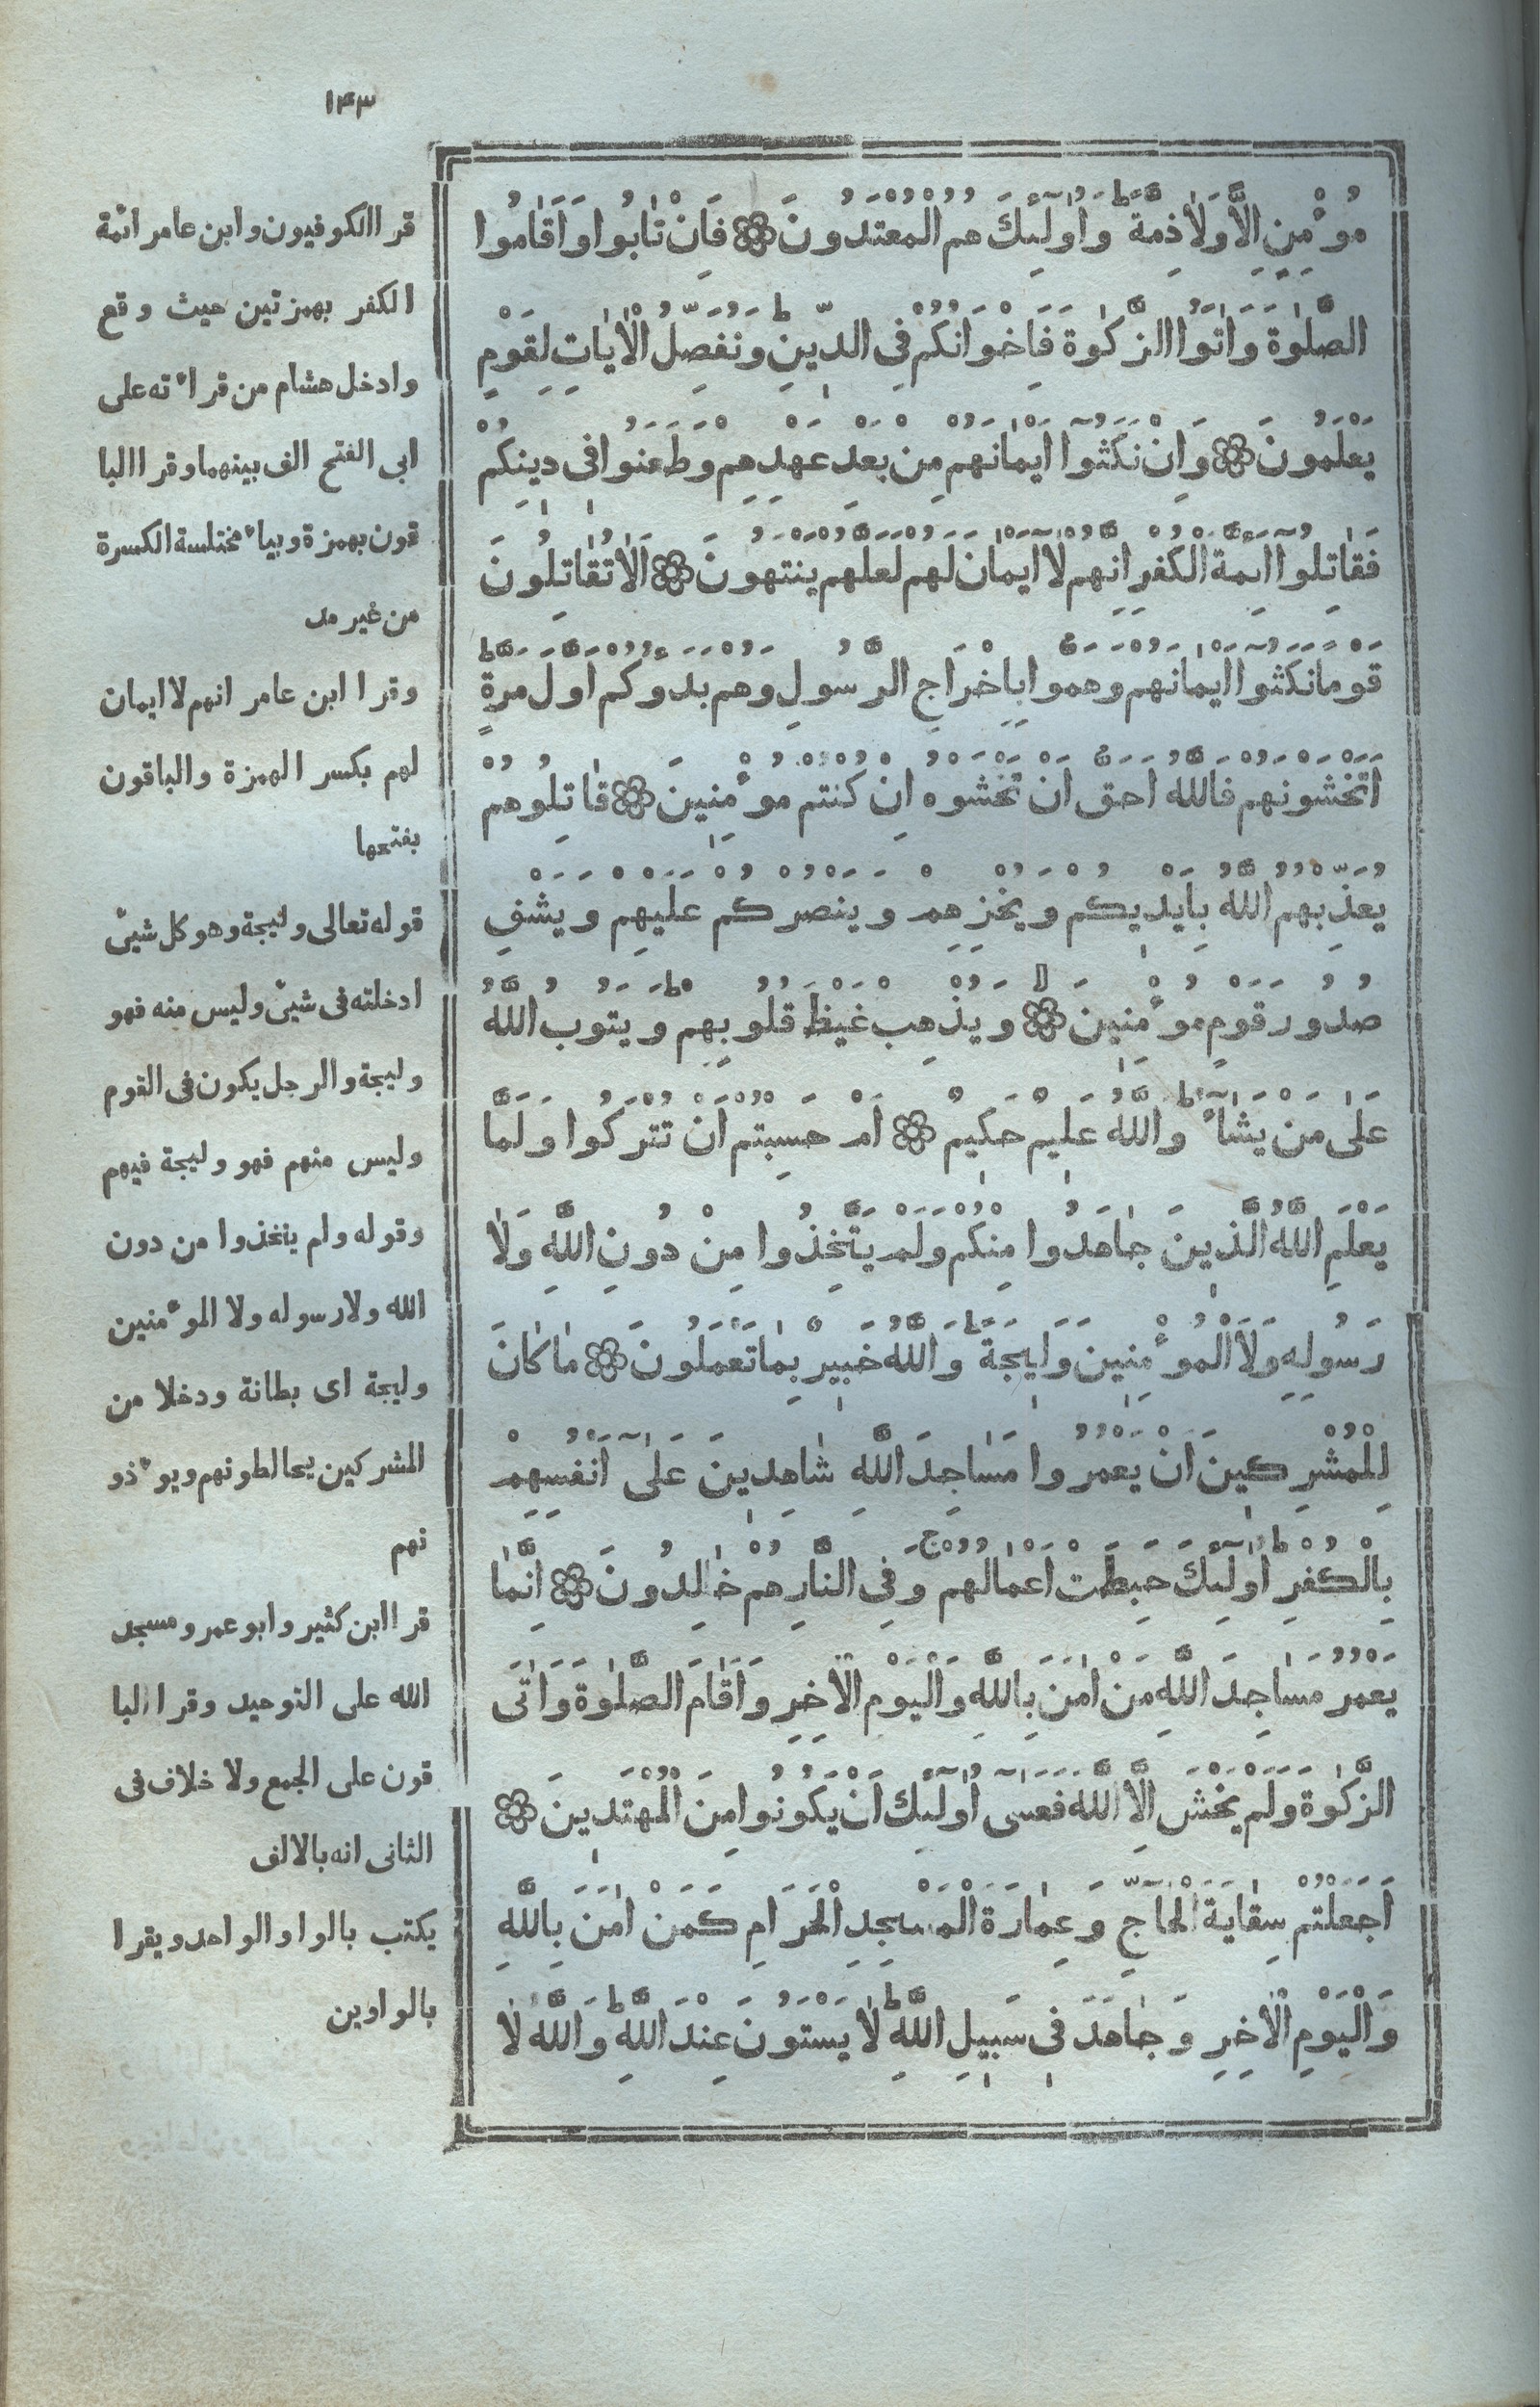 ١۴٣
مُؤْمِنٍ اِلاًّ وَلاٰ ذِمَّةً ؕ وَاُولٰۤئِكَ هُمُ الْمُعْتَدُونَ ۞ فَاِنْ تٰابُوا وَاَقٰامُوا
الصَّلٰوةَ وَاٰتَوُا الزَّكٰوةَ فَاِخْوَانُكُمْ فِى الدّٖينِ ؕ وَنُفَصِّلُ الْاٰيٰاتِ لِقَوْمٍ
يَعْلَمُونَ ۞ وَاِنْ نَكَثُوۤا اَيْمٰانَهُمْ مِنْ بَعْدِ عَهْدِهِمْ وَطَعَنُوا فٖى دٖينِكُمْ
فَقٰاتِلُوۤا اَئِمَّةَ الْكُفْرِ اِنَّهُمْ لاٰۤ اَيْمٰانَ لَهُمْ لَعَلَّهُمْ يَنْتَهُونَ ۞ اَلاٰ تُقٰاتِلُونَ
قَوْمًا نَكَثُوۤا اَيْمٰانَهُمْ وَهَمُّوا بِاِخْرَاجِ الرَّسُولِ وَهُمْ بَدَؤُكُمْ اَوَّلَ مَرَّةٍ ؕ
اَتَخْشَوْنَهُمْ فَاللّٰهُ اَحَقُّ اَنْ تَخْشَوْهُ اِنْ كُنْتُمْ مُؤْمِنٖينَ ۞ قٰاتِلُوهُمْ
يُعَذِّبْهُمُ اللّٰهُ بِاَيْدٖيكُمْ وَيُخْزِهِمْ وَيَنْصُرْكُمْ عَلَيْهِمْ وَيَشْفِ
صُدُورَ قَوْمٍ مُؤْمِنٖينَ ۞ وَيُذْهِبْ غَيْظَ قُلُوبِهِمْ ؕ وَيَتُوبُ اللّٰهُ
عَلٰى مَنْ يَشٰۤاءُ ؕ وَاللّٰهُ عَلٖيمٌ حَكٖيمٌ ۞ اَمْ حَسِبْتُمْ اَنْ تُتْرَكُوا وَلَمَّا
يَعْلَمِ اللّٰهُ الَّذٖينَ جٰاهَدُوا مِنْكُمْ وَلَمْ يَتَّخِذُوا مِنْ دُونِ اللّٰهِ وَلاٰ
رَسُولِهٖ وَلاَ الْمُؤْمِنٖينَ وَلٖيجَةً ؕ وَاللّٰهُ خَبٖيرٌ بِمٰا تَعْمَلُونَ ۞ مٰا كٰانَ
لِلْمُشْرِكٖينَ اَنْ يَعْمُرُوا مَسٰاجِدَ اللّٰهِ شٰاهِدٖينَ عَلٰۤى اَنْفُسِهِمْ
بِالْكُفْرِ ؕ اُولٰۤئِكَ حَبِطَتْ اَعْمٰالُهُمْ ۚ وَفِى النَّارِ هُمْ خٰالِدُونَ ۞ اِنَّمٰا
يَعْمُرُ مَسٰاجِدَ اللّٰهِ مَنْ اٰمَنَ بِاللّٰهِ وَالْيَوْمِ الْاٰخِرِ وَاَقٰامَ الصَّلٰوةَ وَاٰتَى
الزَّكٰوةَ وَلَمْ يَخْشَ اِلاَّ اللّٰهَ فَعَسٰۤى اُولٰۤئِكَ اَنْ يَكُونُوا مِنَ الْمُهْتَدٖينَ ۞
اَجَعَلْتُمْ سِقٰايَةَ الْحٰۤاجِّ وَعِمٰارَةَ الْمَسْجِدِ الْحَرَامِ كَمَنْ اٰمَنَ بِاللّٰهِ
وَالْيَوْمِ الْاٰخِرِ وَجٰاهَدَ فٖى سَبٖيلِ اللّٰهِ ؕ لاٰ يَسْتَوُونَ عِنْدَ اللّٰهِ ؕ وَاللّٰهُ لاٰ
قرا الكوفيون وابن عامر ائمة
الكفر بهمزتين حيث وقع
وادخل هشام من قراءته على
ابى الفتح الف بينهما وقرا البا
قون بهمزة وياء مختلسة الكسرة
من غير مد
وقرا ابن عامر انهم لا ايمان
لهم بكسر الهمزة والباقون
بفتحها
قوله تعالى وليجة وهو كل شيئ
ادخلته فى شيئ وليس منه فهو
وليجة والرجل يكون فى القوم
وليس منهم فهو وليجة فيهم
وقوله ولم يتخذوا من دون
الله ولا رسوله ولا الموٴمنين
وليجة اى بطانة ودخلا من
المشركين يخالطونهم ويوٴذو
نهم
قرا ابن كثير وابو عمرو مسجد
الله على التوحيد وقرا البا
قون على الجمع ولا خلاف فى
الثانى انه بالالف
يكتب بالواو الواحد ويقرا
بالواوين